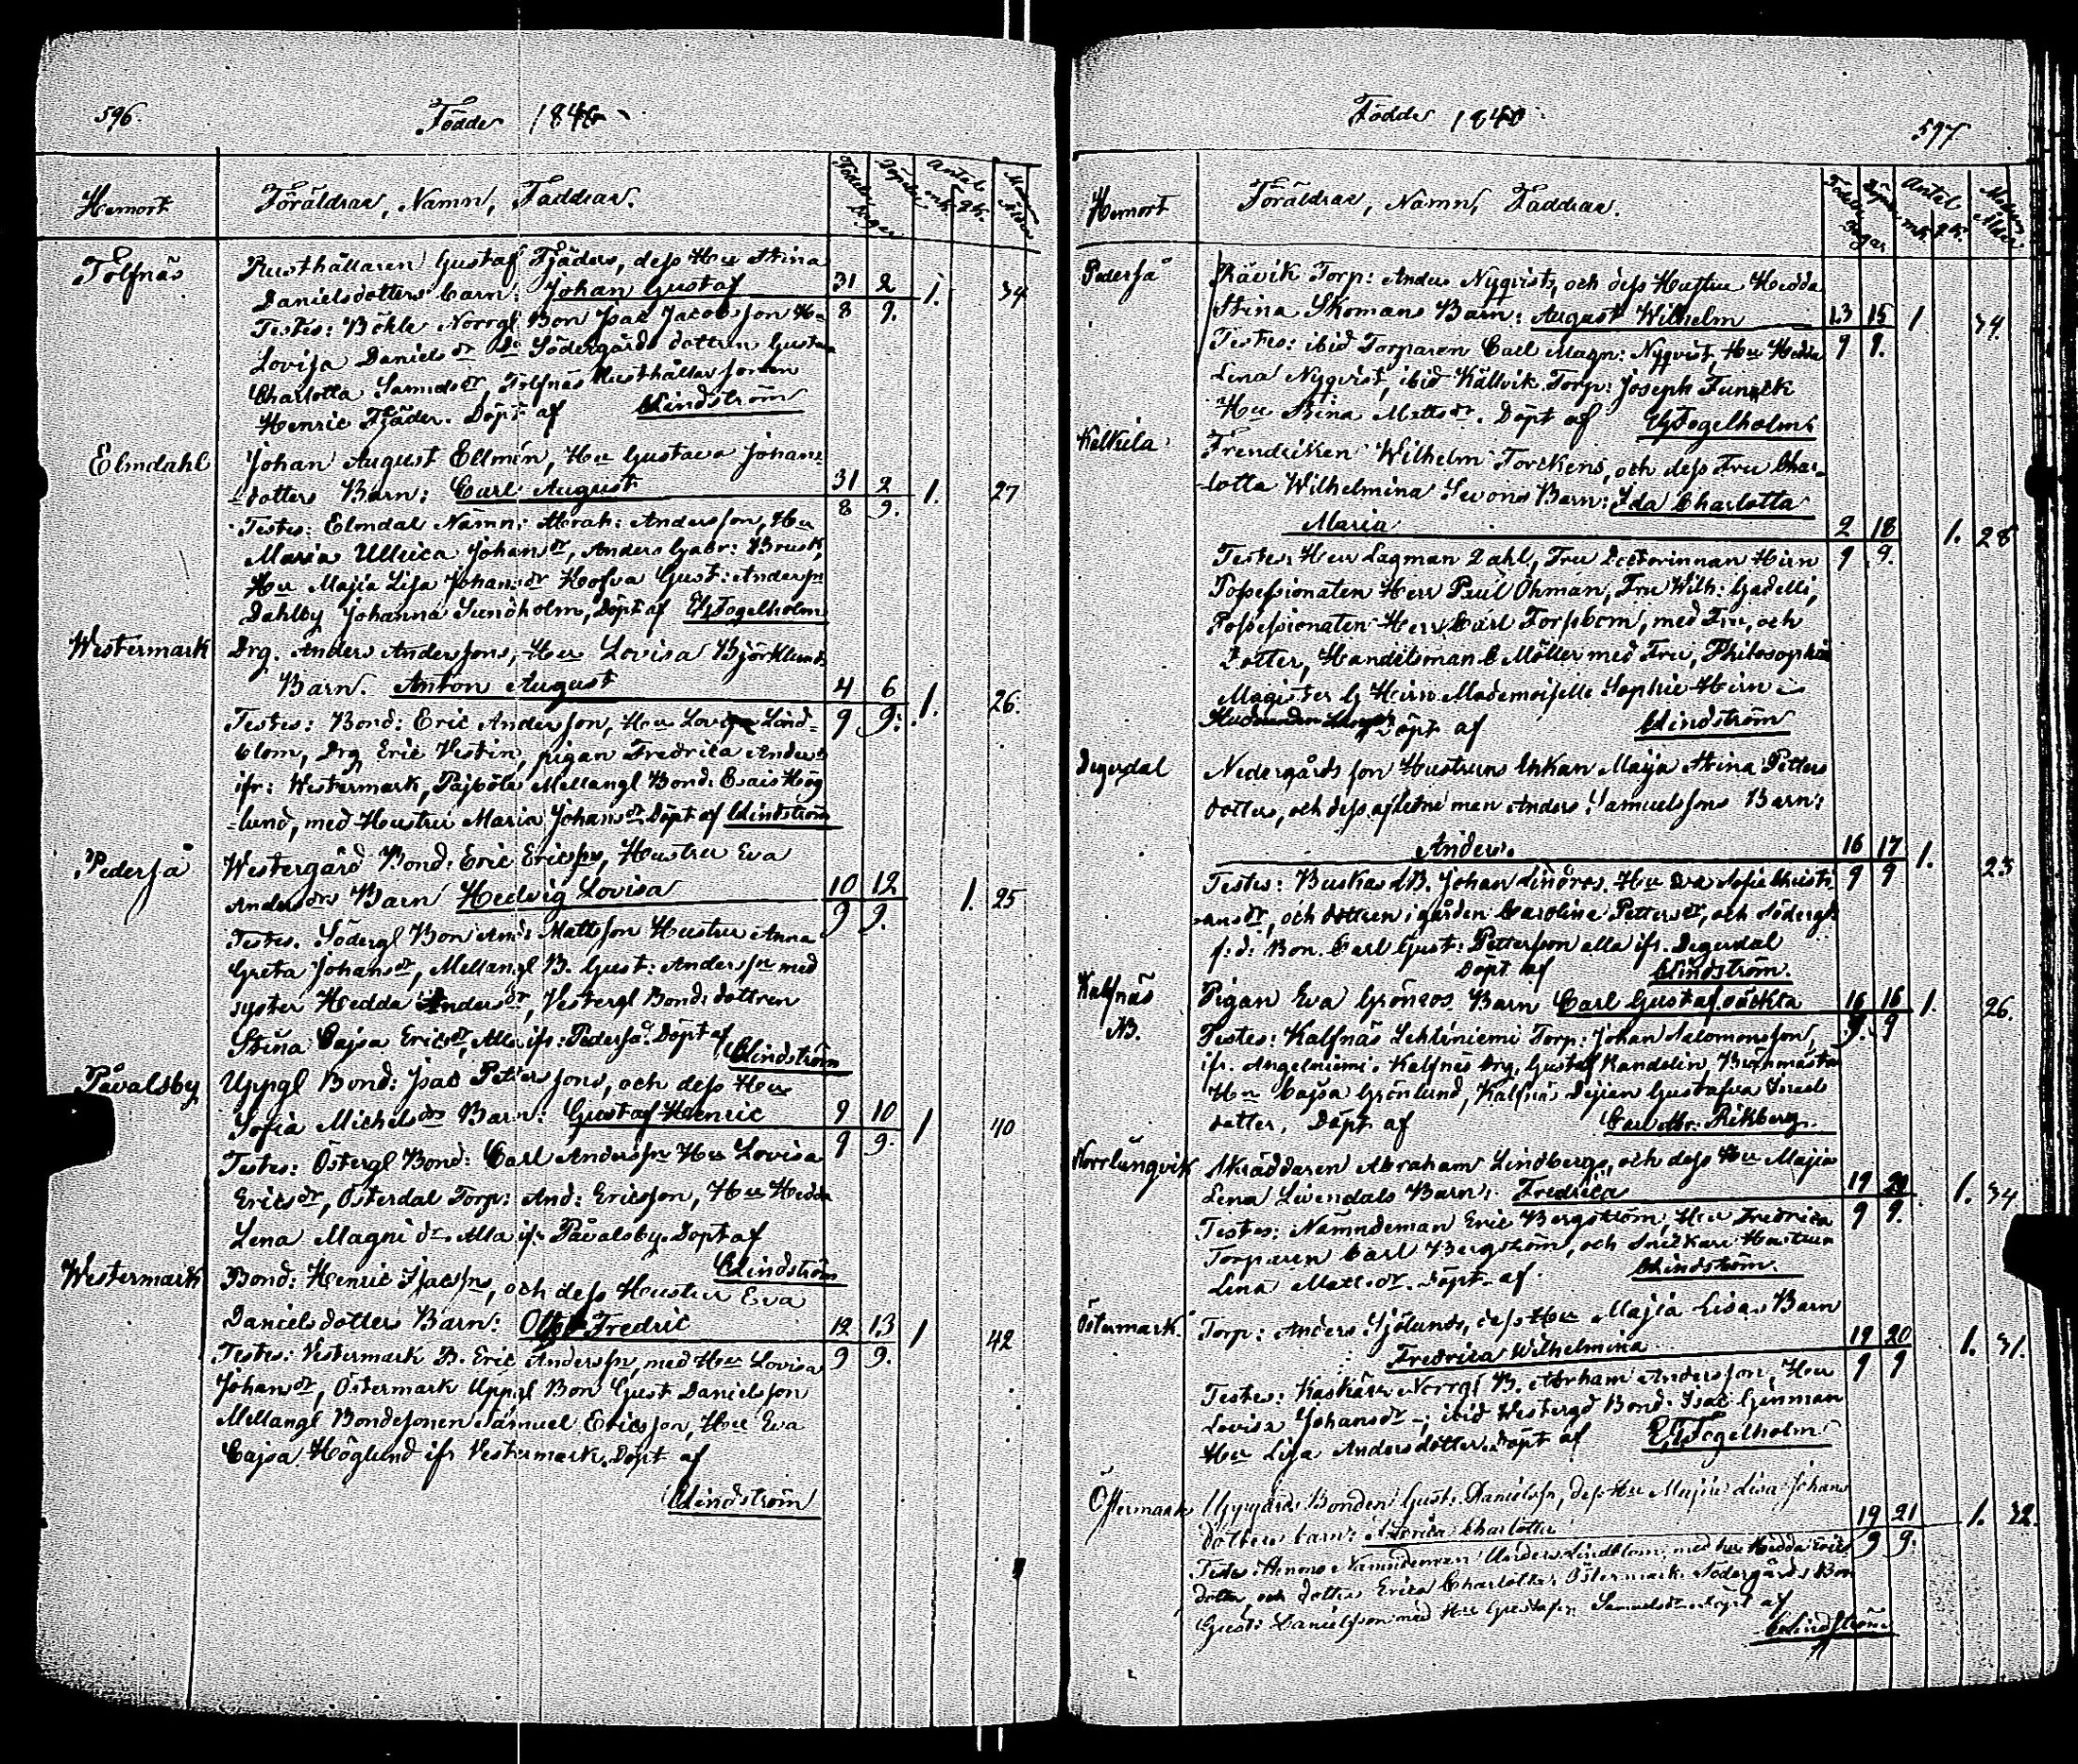 596.
Födde 1840
Hemort
Föräldrar, Namn, Faddrar.
Födelse Döpelse Dagar
Antal mk. qk.
Modrens Ålder
Tolfnäs
Rusthållaren Gustaf Fjäders, dess Hu Stina
Danielsdotters barn: Johan Gustaf 31 2 1. 34
Testes: Böhle Norrgl Bon Isac Jacobsson Hu 8 9.
Lovisa Danielsdr Do Södergårds dottren Gustava
Charlotta Samuelsdr, Tolfnäs Rusthållar sonen
Henric Fjäder. Döpt af CLindström
Elmdahl
Johan August Ellmén, Hu Gustava Johans
dotters Barn: Carl August 31 2 1. 27
Testes: Elmdal Nämn: Abrah: Andersson, Hu 8 9.
Maria Ullrica Johansdr, Anders Gabr: Brusk,
Hu Majia Lisa Johansdr Gust: Anderssn
Dahlby Johanna Sundholm, Döpt af EGFogelholm
Westermark
Drg. Anders Anderssons, Hu Lovisa Björklunds
Barn. Anton August 4 6 1. 26.
Testes: Bond: Eric Andersson, Hu Lovisa Lind= 9 9.
blom, Drg Eric Vestin, pigan Fredrica Anders
ifr: Westermark, Pajböle Mellangl Bond: Esais Hög
=lund, med Hustru Maria Johansdr Döpt af CLindström
Pederså
Westergård Bond: Eric Ericssns, Hustru Eva
Andersdrs Barn Hedvig Lovisa 10 12 1. 25
Testes. Södergl Bon And: Mattsson Hustru Anna 9 9.
Greta Johansdr, Mellangl B. Gust: Anderssn med
syster Hedda Andersdr, Vestergl Bond: dottren
Stina Cajsa Ericsdr, Alla ifr: Pederså. Döpt af
CLindström
Påvalsby
Uppgl Bond: Isac Peterssons, och dess Hu
Sofia Michelsdrs Barn: Gustaf Henric 9 10 1 40
Testes: Östergl Bond: Carl Anderssn Hu Lovisa 9 9.
Ericsdr, Österdal Torp: And: Ericsson, Hu Hedda
Lena Magnidr. Alla ifr Påvalsby. Döpt af
CLindström
Westermark
Bond: Henric Isacssns, och dess Hustru Eva
Danielsdotters Barn: Fredric 12 13 1 42
Testes: Vestermark B. Eric Anderssn, med Hu Lovisa 9 9.
Johansdr, Östermark Uppgl Bon Gust Danielsson
Mellangl Bondesonen Samuel Ericsson, Hu Eva
Cajsa Höglund ifr Vestermark. Döpt af
CLindström
Födde 1840
597
Hemort
Föräldrar, Namn, Faddrar.
Födelse Döpelse Dagar
Antal mk. qk.
Modrens Ålder
Pederså
Råvik Torp: Anders Nyqvists, och dess Hustru Hedda
Stina Skomans Barn: August Wilhelm 13 15 1. 34.
Testes: ibid Torparen Carl Magn: Nyqvist, Hu Hedda 9 9.
Lena Nyqvist, ibid Källvik Torp: Joseph Funck
Hu Stina Mattsdr. Döpt af EGFogelholm
Kelkila
Wilhelm Torckens, och dess Fru Char=
=lotta Wilhelmina Barn: Ida Charlotta
Maria 2 18 1. 28
Testes: Herr Lagman Dahl, Fru Doctorinnan Hirn 9 9.
Possessionaten Herr Paul Öhman, Fru Wilh: Gadelli,
Possessionaten Herr Carl Forssbom, med Fru, och
Dotter, Handelsman C Möller med Fru, Philosophiæ
Magister G Hirn Mademoiselle Sophie Hirn
Döpt af CLindström
Degerdal
Nedergårds son Hustrun Enkan Maija Stina Petters
dotters, och dess aflidne man Anders Samuelssons Barn:
Anders. 16 17 1. 23
Testes: Buskas LB. Johan Lindros, Hu Eva Sofia Christi 9 9
=ansdr, och dottren i gården Carolina Pettersdr, och Södergs
s: d: Bon Carl Gust: Pettersson alla ifr. Degerdal
Döpt af CLindström.
Kalfnäs
NB.
Pigan Eva Grönroos Barn Carl Gustaf oäckta 16 16 1. 26.
Testes: Kalfnäs Lehtiniemi Torp: Johan Salomonsson, 9. 9
ifr. Angelniemi. Kalfnäs Drg. Gustaf Randelin,
Hu Cajsa Grönlund, Kalfnäs Gustafva Israels
dotter, Döpt af Carl Rikberg.
Norrlungvik
Skräddaren Abraham Lindbergs, och dess Hu Majia
Lena Livendals Barn: Fredrica 19 20 1. 34
Testes: Nämndeman Eric Bergström, Hu Fredrica 9 9.
Torparen Carl Bergström, och Snickars Hustrun
Lena Mattsdr. Döpt af CLindström.
Östermark.
Torp: Anders Sjölunds, dess Hu Majia Lisas Barn
Fredrica Wilhelmina 19 20 1. 31.
Testes: Kaskärr Norrgl B. Abrham Andersson, Hu 9 9
Lovisa Johansdr -, ibid Westergd Bond. Isac Ginman
Hu Lisa Andersdotter. Döpt af EGFogelholm
Östermark
Uppgårds Bonden Gust: Danielssn, dess Hu Majia Lisa Johans
dotters barn: Charlotta 19 21 1. 32.
Testes: Nämndeman Anders Lindblom, med hu Hedda Erics 9 9.
dotter, och dotter Erica Charlotta. Östermark Södergårds Bon
Gust: Danielsson med Hu Gustafva Samuelsdr. Döpt af
CLindström